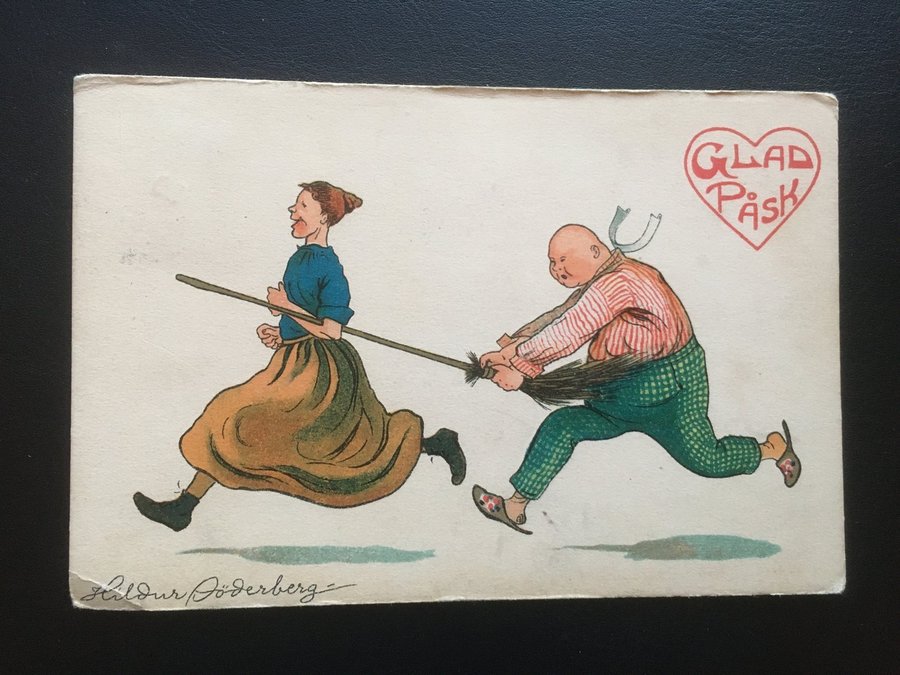 GLAD
PÅSK
Hildur Söderberg